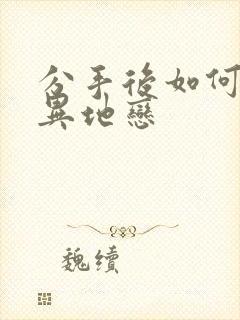 分手後如何
異地戀
魏續